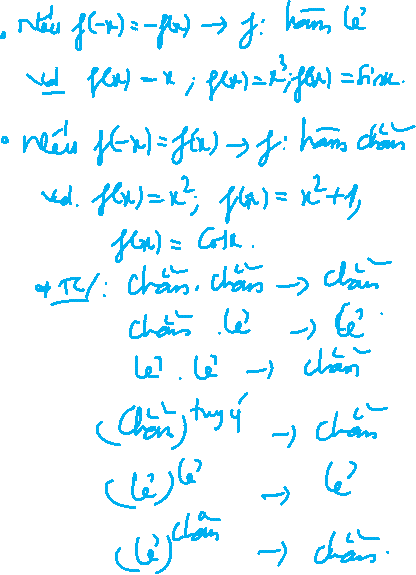 • nếu f(-x) = -f(x) → f: hàm lẻ
vd f(x) = x ; f(x) = x³; f(x) = sinx.
• nếu f(-x) = f(x) → f: hàm chẵn
vd. f(x) = x²; f(x) = x² + 1,
f(x) = cosx.
* TC/: chẵn . chẵn → chẵn
chẵn . lẻ → lẻ.
lẻ . lẻ → chẵn
(chẵn)^tuỳ ý → chẵn
(lẻ)^lẻ → lẻ
(lẻ)^chẵn → chẵn.